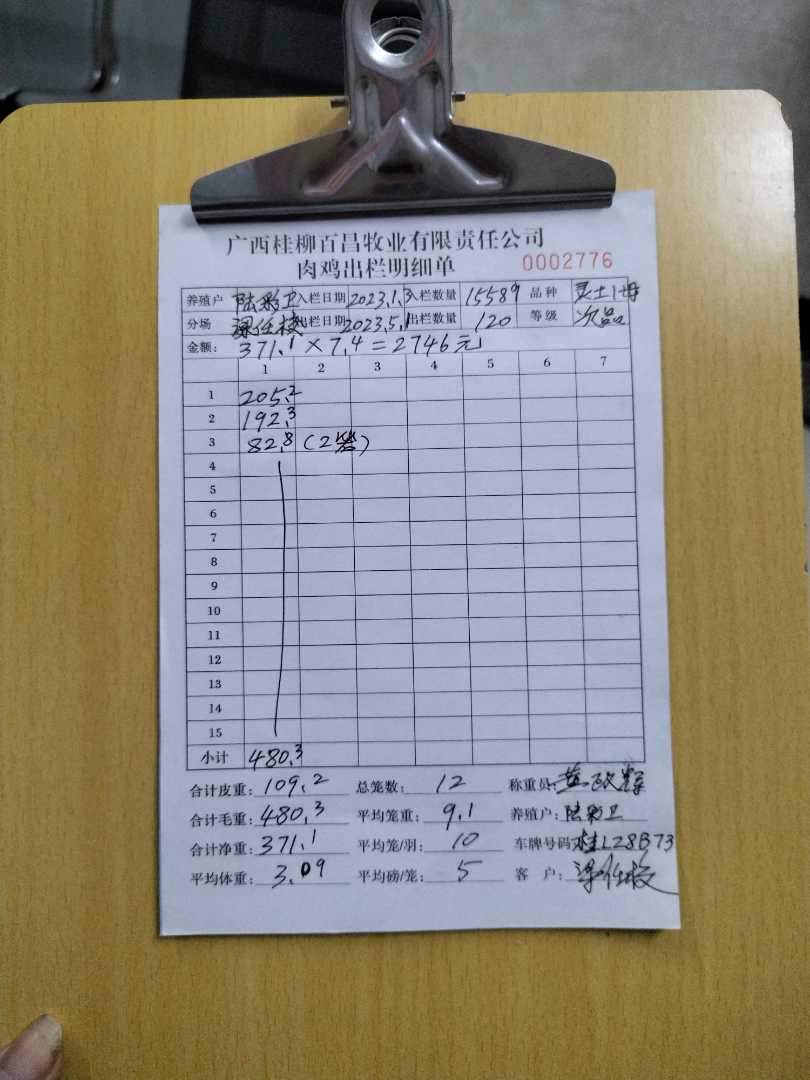 广西桂柳百昌牧业有限责任公司
肉鸡出栏明细单 0002776
养殖户 陆彩卫 入栏日期 2023.1.3 入栏数量 15589 品种
分场 出栏日期 2023.5.1 出栏数量 120 等级 次品
金额: 371.1×7.4=2746元
1 2 3 4 5 6 7
1 205.2
2 192.3
3 82.8 (2
4
5
6
7
8
9
10
11
12
13
14
15
小计 480.3
合计皮重: 109.2 总笼数: 12 称重员:
合计毛重: 480.3 平均笼重: 9.1 养殖户: 陆彩卫
合计净重: 371.1 平均笼/羽: 10 车牌号码 桂L28B73
平均体重: 3.09 平均磅/笼: 5 客户: